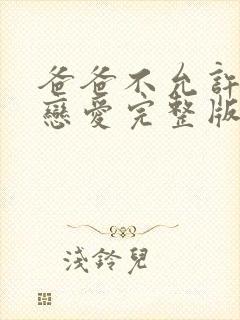 爸爸不允許
戀愛完整版
淺鈴兒